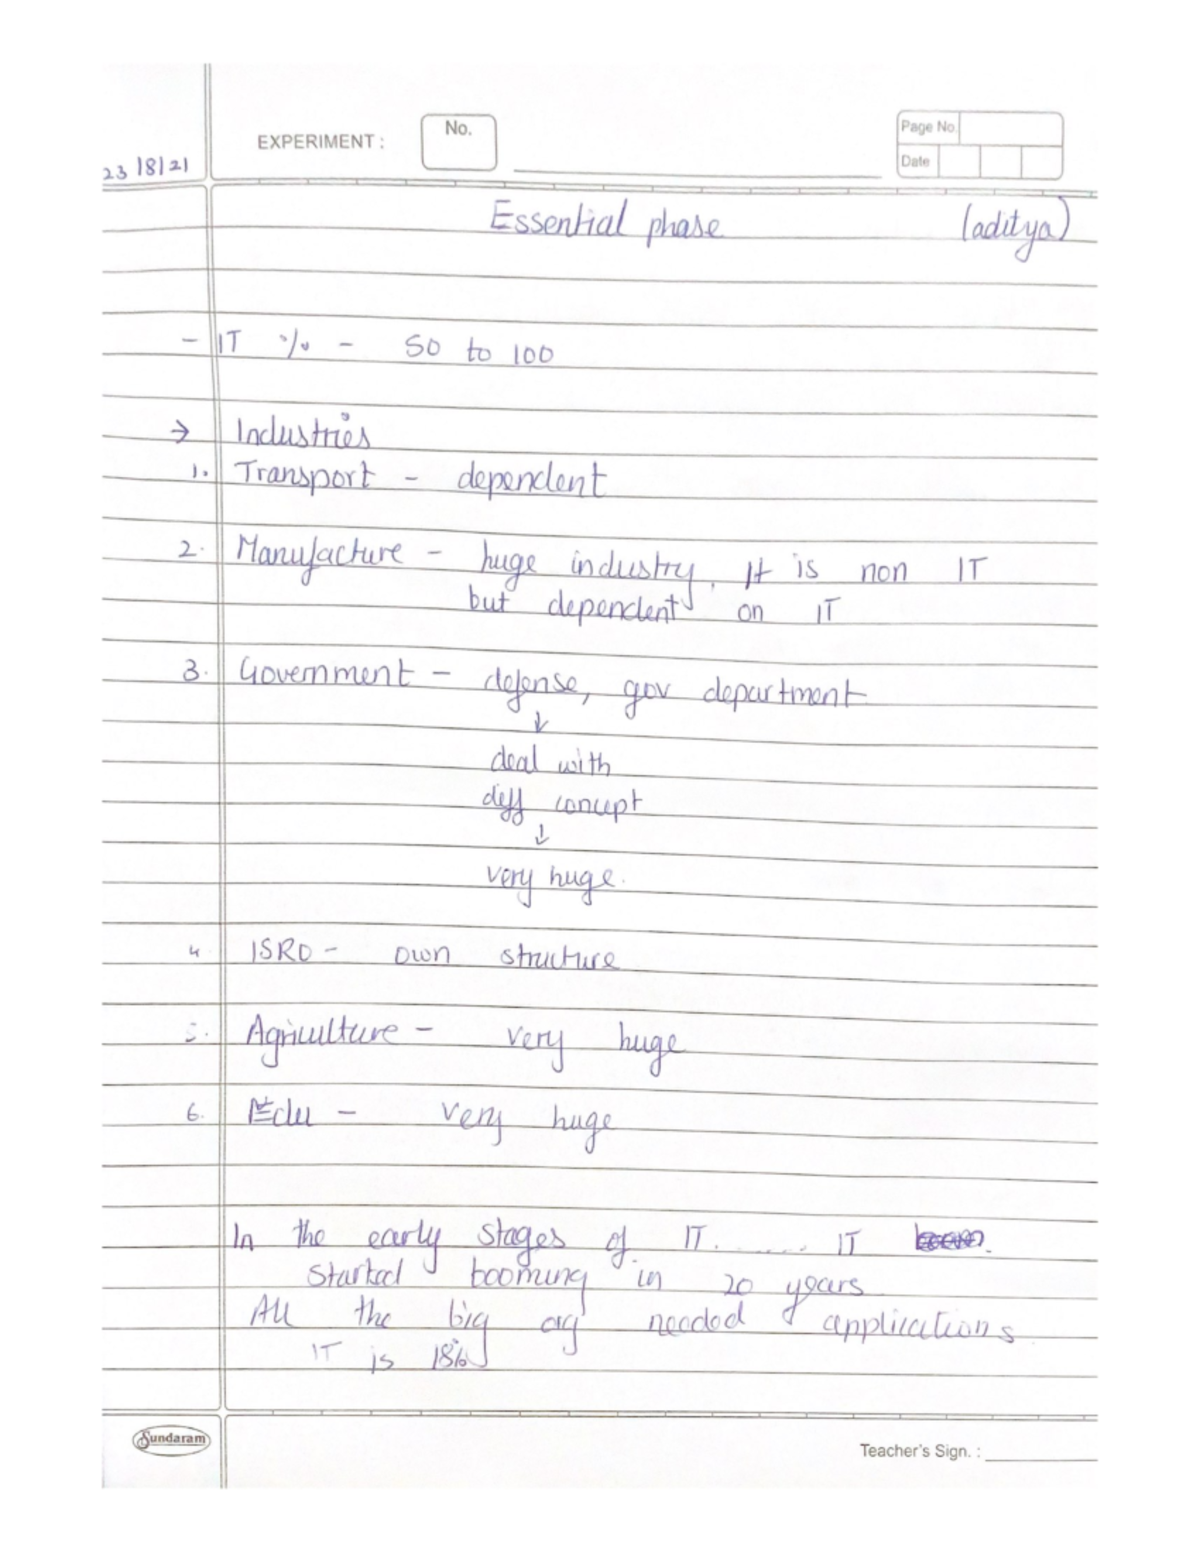 EXPERIMENT :
No.
Page No.
Date
23/8/21
Essential phase (aditya)
- IT % - 50 to 100
→ Industries
1. Transport - dependent
2. Manufacture - huge industry. It is non IT
but dependent on IT
3. Government - defense, gov department
↓
deal with
diff concept
↓
very huge.
4. ISRO - own structure
5. Agriculture - very huge
6. Edu - very huge
In the early stages of IT. ...... IT
started booming in 20 years
All the big org needed applications
IT is 18%
Sundaram
Teacher's Sign. :